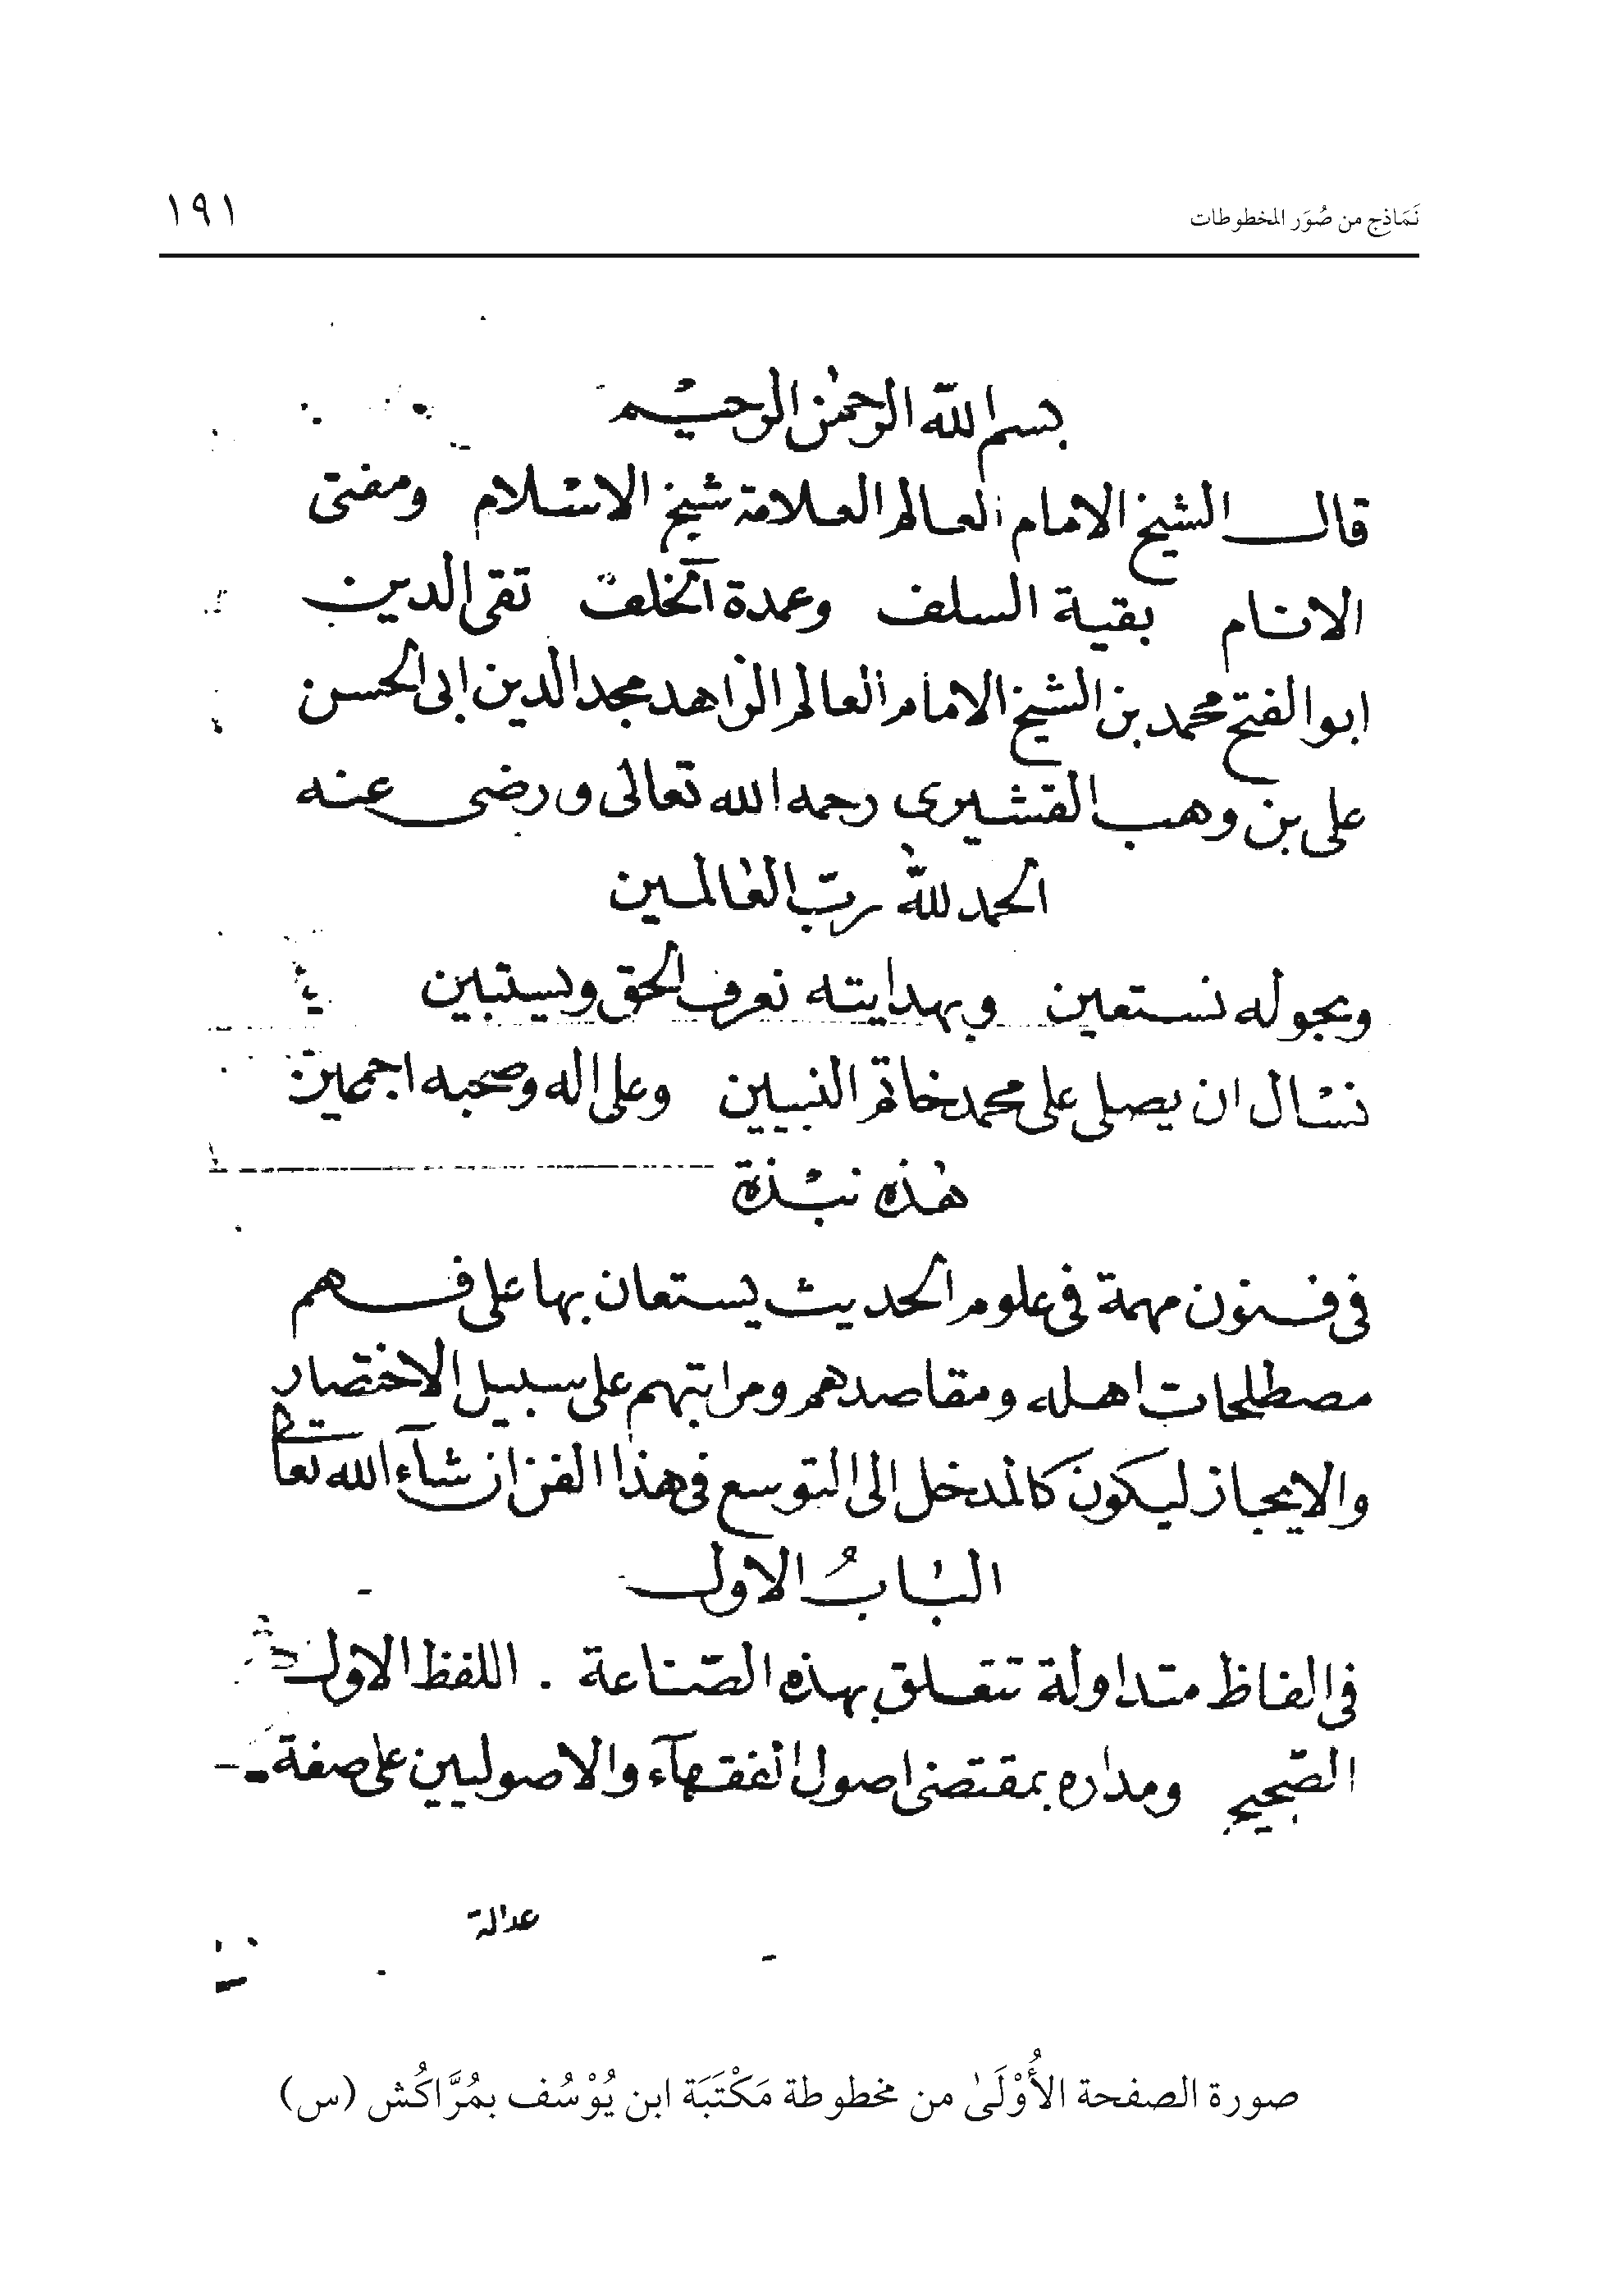 نَمَاذج من صُوَر المخطوطات ١٩١
بسم الله الرحمٰن الرحيم
قال الشيخ الامام العالم العلامة شيخ الاسلام ومفتى
الانام بقية السلف وعمدة الخلف تقى الدين
ابو الفتح محمد بن الشيخ الامام العالم الزاهد مجد الدين ابى الحسن
على بن وهب القشيرى رحمه الله تعالى ورضى عنه
الحمد لله ربّ العالمين
وبحوله نستعين وبهدايته نعرف الحق ويستبين
نسال ان يصلى على محمد خاتم النبيين وعلى اله وصحبه اجمعين
هٰذه نبذة
فى فنون مهمة فى علوم الحديث يستعان بها على فهم
مصطلحات اهله ومقاصدهم ومراتبهم على سبيل الاختصار
والايجاز ليكون كالمدخل الى التوسع فى هذا الفن ان شآء الله تعالى
الباب الاول
فى الفاظ متداولة تتعلق بهذه الصّناعة . اللفظ الاول
الصّحيح ومداره بمقتضى اصول الفقهآء والاصوليين على صفة
عدالة
صورة الصفحة الأُوْلَىٰ من مخطوطة مَكْتَبَة ابن يُوْسُف بمُرَّاكُش (س)